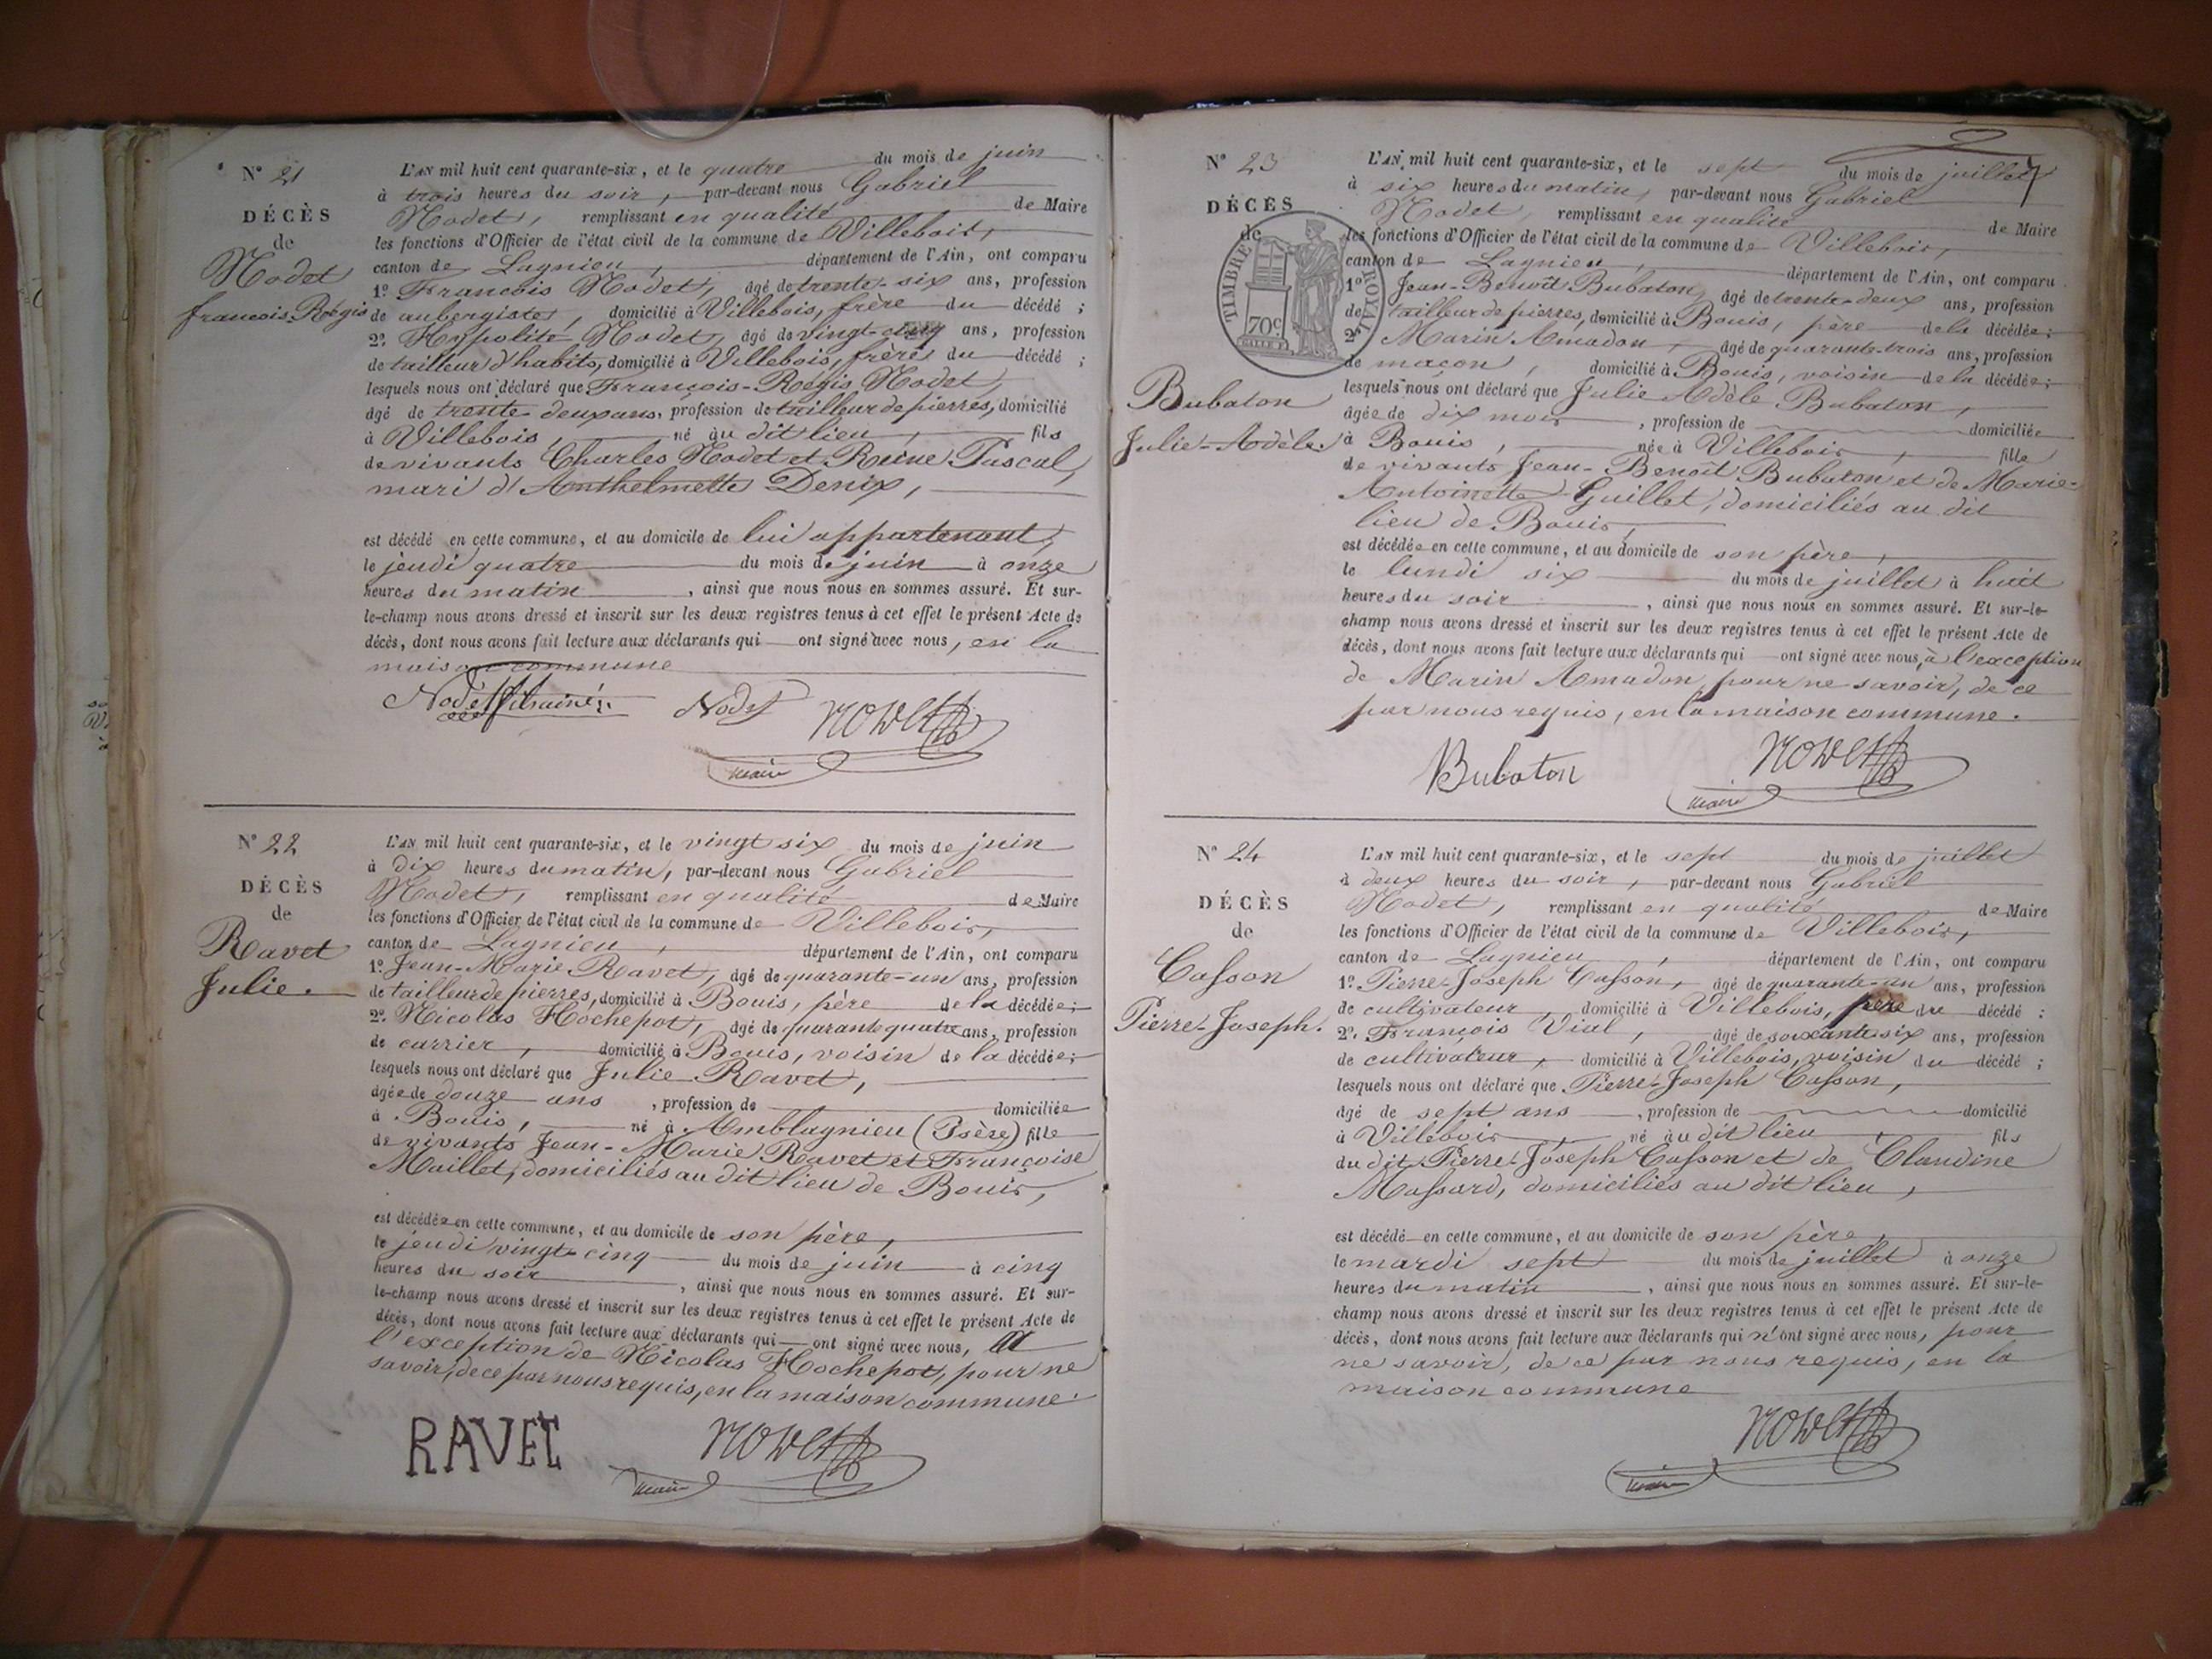 N° 21
DÉCÈS
de
Nodet
francois-Régis
L'AN mil huit cent quarante-six, et le quatre du mois de juin
à trois heures du soir, par-devant nous Gabriel
Nodet, remplissant en qualité de Maire
les fonctions d'Officier de l'état civil de la commune de Villebois,
canton de Lagnieu, département de l'Ain, ont comparu
1° Francois Nodet, âgé de trente-six ans, profession
de aubergiste, domicilié à Villebois, frère du décédé ;
2° Hypolite Nodet, âgé de vingt-cinq ans, profession
de tailleur d'habits, domicilié à Villebois, frère du décédé ;
lesquels nous ont déclaré que François-Régis Nodet,
âgé de trente-deux ans, profession de tailleur de pierres, domicilié
à Villebois, né au dit lieu, fils
de vivants Charles Nodet et Reine Pascal,
mari d'Anthelmette Denix,
est décédé en cette commune, et au domicile de lui appartenant,
le jeudi quatre du mois de juin à onze
heures du matin, ainsi que nous nous en sommes assuré. Et sur-
le-champ nous avons dressé et inscrit sur les deux registres tenus à cet effet le présent Acte de
décès, dont nous avons fait lecture aux déclarants qui ont signé avec nous, en la
maison commune
Nodet Nodet
maire
N° 22
DÉCÈS
de
Ravet
Julie.
L'AN mil huit cent quarante-six, et le vingt six du mois de juin
à dix heures du matin, par-devant nous Gabriel
Nodet, remplissant en qualité de Maire
les fonctions d'Officier de l'état civil de la commune de Villebois,
canton de Lagnieu, département de l'Ain, ont comparu
1° Jean-Marie Ravet, âgé de quarante-un ans, profession
de tailleur de pierres, domicilié à Bouis, père de la décédée ;
2° Nicolas Hochepot, âgé de quarante quatre ans, profession
de carrier, domicilié à Bouis, voisin de la décédée ;
lesquels nous ont déclaré que Julie Ravet,
âgée de douze ans, profession de domiciliée
à Bouis, né à Amblagnieu (Isère) fille
de vivants Jean-Marie Ravet et Françoise
Maillet, domiciliés au dit lieu de Bouis,
est décédée en cette commune, et au domicile de son père,
le jeudi vingt-cinq du mois de juin à cinq
heures du soir, ainsi que nous nous en sommes assuré. Et sur-
le-champ nous avons dressé et inscrit sur les deux registres tenus à cet effet le présent Acte de
décès, dont nous avons fait lecture aux déclarants qui ont signé avec nous, à
l'exception de Nicolas Hochepot, pour ne
savoir, de ce par nous requis, en la maison commune.
RAVET Nodet
maire
N° 23
DÉCÈS
de
TIMBRE ROYAL
70c
Bubaton
Julie-Adèle.
L'AN mil huit cent quarante-six, et le sept du mois de juillet
à six heures du matin, par-devant nous Gabriel
Nodet, remplissant en qualité de Maire
les fonctions d'Officier de l'état civil de la commune de Villebois,
canton de Lagnieu, département de l'Ain, ont comparu
1° Jean-Benoît Bubaton, âgé de trente-deux ans, profession
de tailleur de pierres, domicilié à Bouis, père de la décédée ;
2° Marin Amadon, âgé de quarante-trois ans, profession
de maçon, domicilié à Bouis, voisin de la décédée ;
lesquels nous ont déclaré que Julie Adèle Bubaton,
âgée de dix mois, profession de domiciliée
à Bouis, née à Villebois, fille
de vivants Jean-Benoît Bubaton et de Marie-
Antoinette Guillet, domiciliés au dit
lieu de Bouis,
est décédée en cette commune, et au domicile de son père,
le lundi six du mois de juillet à huit
heures du soir, ainsi que nous nous en sommes assuré. Et sur-le-
champ nous avons dressé et inscrit sur les deux registres tenus à cet effet le présent Acte de
décès, dont nous avons fait lecture aux déclarants qui ont signé avec nous, à l'exception
de Marin Amadon, pour ne savoir, de ce
par nous requis, en la maison commune.
Bubaton Nodet
maire
N° 24
DÉCÈS
de
Casson
Pierre-Joseph.
L'AN mil huit cent quarante-six, et le sept du mois de juillet
à deux heures du soir, par-devant nous Gabriel
Nodet, remplissant en qualité de Maire
les fonctions d'Officier de l'état civil de la commune de Villebois,
canton de Lagnieu, département de l'Ain, ont comparu
1° Pierre-Joseph Casson, âgé de quarante-un ans, profession
de cultivateur, domicilié à Villebois, père du décédé ;
2° François Vial, âgé de soixante-six ans, profession
de cultivateur, domicilié à Villebois, voisin du décédé ;
lesquels nous ont déclaré que Pierre-Joseph Casson,
âgé de sept ans, profession de domicilié
à Villebois, né au dit lieu, fils
du dit Pierre-Joseph Casson et de Claudine
Massard, domiciliés au dit lieu,
est décédé en cette commune, et au domicile de son père,
le mardi sept du mois de juillet à onze
heures du matin, ainsi que nous nous en sommes assuré. Et sur-le-
champ nous avons dressé et inscrit sur les deux registres tenus à cet effet le présent Acte de
décès, dont nous avons fait lecture aux déclarants qui n'ont signé avec nous, pour
ne savoir, de ce par nous requis, en la
maison commune
Nodet
maire